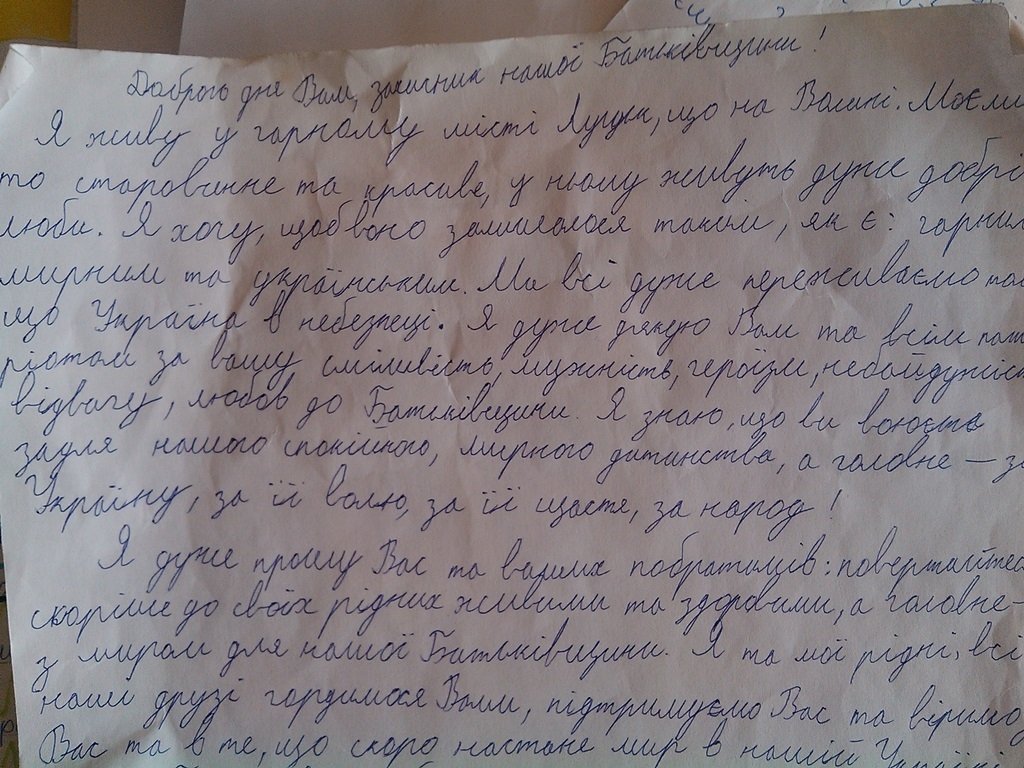 Доброго дня Вам, захисник нашої Батьківщини!
Я живу у гарному місті Луцьк, що на Волині. Моє мі
то старовинне та красиве, у ньому живуть дуже добрі
люди. Я хочу, щоб воно залишалося таким, як є: гарним
мирним та українським. Ми всі дуже переживаємо
що Україна в небезпеці. Я дуже дякую Вам та всім пат
ріотам за вашу сміливість, мужність, героїзм, небайдужіст
відвагу, любов до Батьківщини. Я знаю, що ви воюєте
задля нашого спокійного, мирного дитинства, а головне – за
Україну, за її волю, за її щастя, за народ!
Я дуже прошу Вас та ваших побратимів: повертайтес
скоріше до своїх рідних живими та здоровими, а головне –
з миром для нашої Батьківщини. Я та мої рідні, всі
наші друзі гордимося Вами, підтримуємо Вас та віримо
Вас та в те, що скоро настане мир в нашій Україні